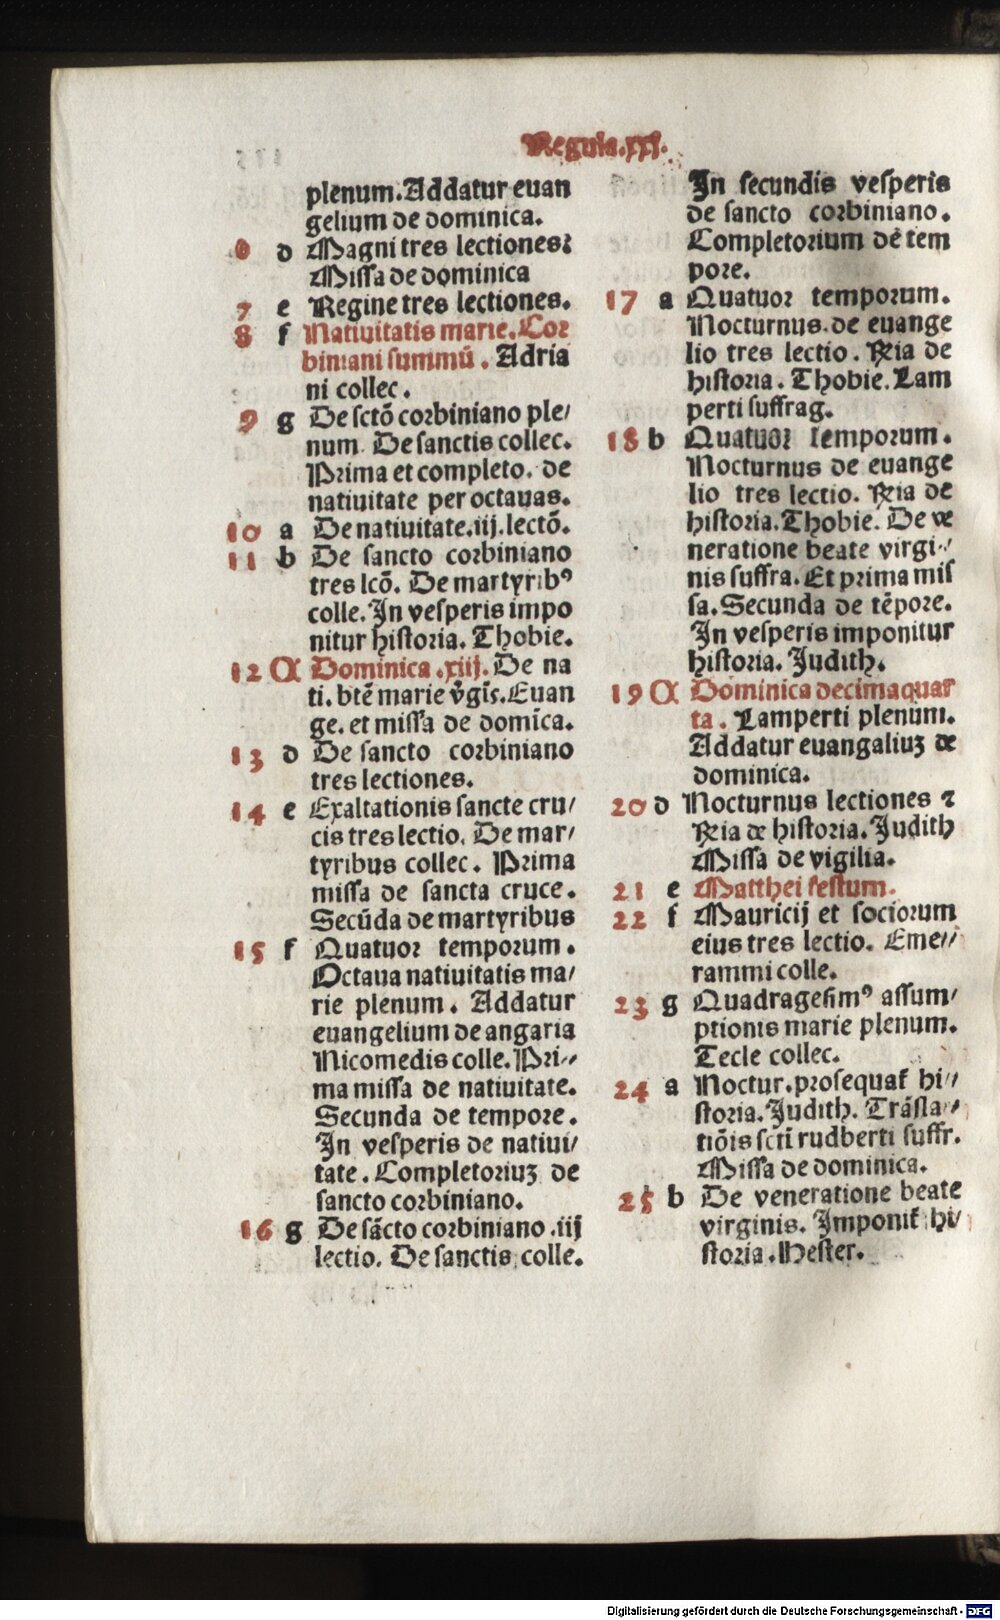 Regula.xxi.
plenum.Addatur euan
gelium de dominica.
6 d Magni tres lectiones⁊
Missa de dominica
7 e Regine tres lectiones.
8 f Natiuitatis marie.Cor
biniani summū. Adria
ni collec.
9 g De sctō corbiniano ple/
num. De sanctis collec.
Prima et completo. de
natiuitate per octauas.
10 a De natiuitate.iij.lectō.
11 b De sancto corbiniano
tres lcō. De martyribꝰ
colle.In vesperis impo
nitur historia. Thobie.
12 A Dominica.xiij.De na
ti. btē marie v̄gīs.Euan
ge. et missa de domīca.
13 d De sancto corbiniano
tres lectiones.
14 e Exaltationis sancte cru/
cis tres lectio. De mar/
tyribus collec. Prima
missa de sancta cruce.
Secūda de martyribus
15 f Quatuor temporum.
Octaua natiuitatis ma/
rie plenum. Addatur
euangelium de angaria
Nicomedis colle. Pri//
ma missa de natiuitate.
Secunda de tempore.
In vesperis de natiui/
tate. Completoriuꝫ de
sancto corbiniano.
16 g De sācto corbiniano .iij
lectio. De sanctis colle.
In secundis vesperis
de sancto corbiniano.
Completorium dē tem
pore.
17 a Quatuor temporum.
Nocturnus.de euange
lio tres lectio. R̄ia de
historia. Thobie. Lam
perti suffrag.
18 b Quatuor temporum.
Nocturnus de euange
lio tres lectio. R̄ia de
historia.Thobie. De ve
neratione beate virgi//
nis suffra.Et prima mis
sa.Secunda de tēpore.
In vesperis imponitur
historia. Judith.
19 A Dominica decimaquar
ta. Lamperti plenum.
Addatur euangaliuꝫ de
dominica.
20 d Nocturnus lectiones ⁊
R̄ia de historia.Judith
Missa de vigilia.
21 e Matthei festum.
22 f Mauricij et sociorum
eius tres lectio. Eme//
rammi colle.
23 g Quadragesimꝰ assum/
ptionis marie plenum.
Tecle collec.
24 a Noctur.prosequat̄ hi//
storia.Judith. Trāsla//
tiōis scti rudberti suffr.
Missa de dominica.
25 b De veneratione beate
virginis. Imponit̄ hi/
storia.Hester.
Digitalisierung gefördert durch die Deutsche Forschungsgemeinschaft - DFG